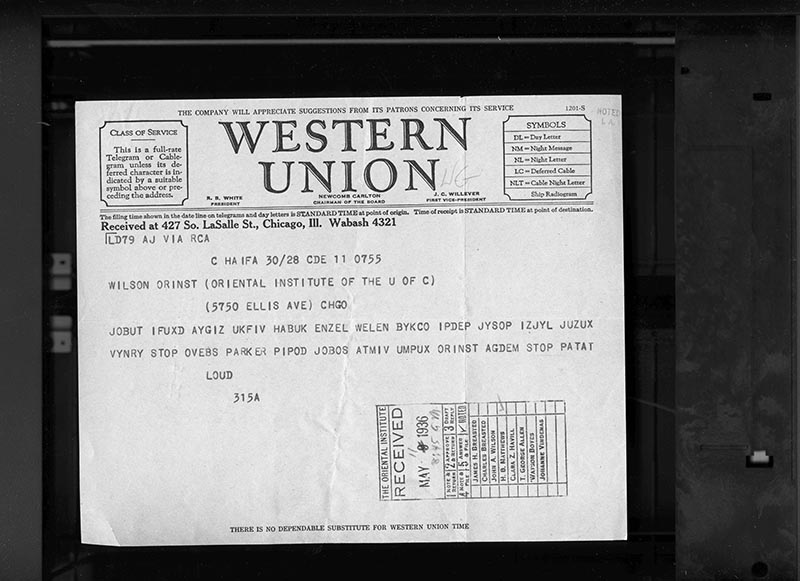 THE COMPANY WILL APPRECIATE SUGGESTIONS FROM ITS PATRONS CONCERNING ITS SERVICE
1201-S
CLASS OF SERVICE
This is a full-rate
Telegram or Cable-
gram unless its de-
ferred character is in-
dicated by a suitable
symbol above or pre-
ceding the address.
WESTERN
UNION
R. B. WHITE
PRESIDENT
NEWCOMB CARLTON
CHAIRMAN OF THE BOARD
J. C. WILLEVER
FIRST VICE-PRESIDENT
SYMBOLS
DL = Day Letter
NM = Night Message
NL = Night Letter
LC = Deferred Cable
NLT = Cable Night Letter
Ship Radiogram
The filing time shown in the date line on telegrams and day letters is STANDARD TIME at point of origin. Time of receipt is STANDARD TIME at point of destination.
Received at 427 So. LaSalle St., Chicago, Ill. Wabash 4321
LD79 AJ VIA RCA
C HAIFA 30/28 CDE 11 0755
WILSON ORINST (ORIENTAL INSTITUTE OF THE U OF C)
(5750 ELLIS AVE) CHGO
JOBUT IFUXD AYGIZ UKFIV HABUK ENZEL WELEN BYKCO IPDEP JYSOP IZJYL JUZUX
VYNRY STOP OVEBS PARKER PIPOD JOBOS ATMIV UMPUX ORINST AGDEM STOP PATAT
LOUD
315A
THE ORIENTAL INSTITUTE
RECEIVED
MAY 1936
JAMES H. BREASTED
CHARLES BREASTED
JOHN A. WILSON
H. B. MATTHEWS
CLARA Z. HAVILL
T. GEORGE ALLEN
WATSON BOYES
JOHANNE VINDENAS
THERE IS NO DEPENDABLE SUBSTITUTE FOR WESTERN UNION TIME